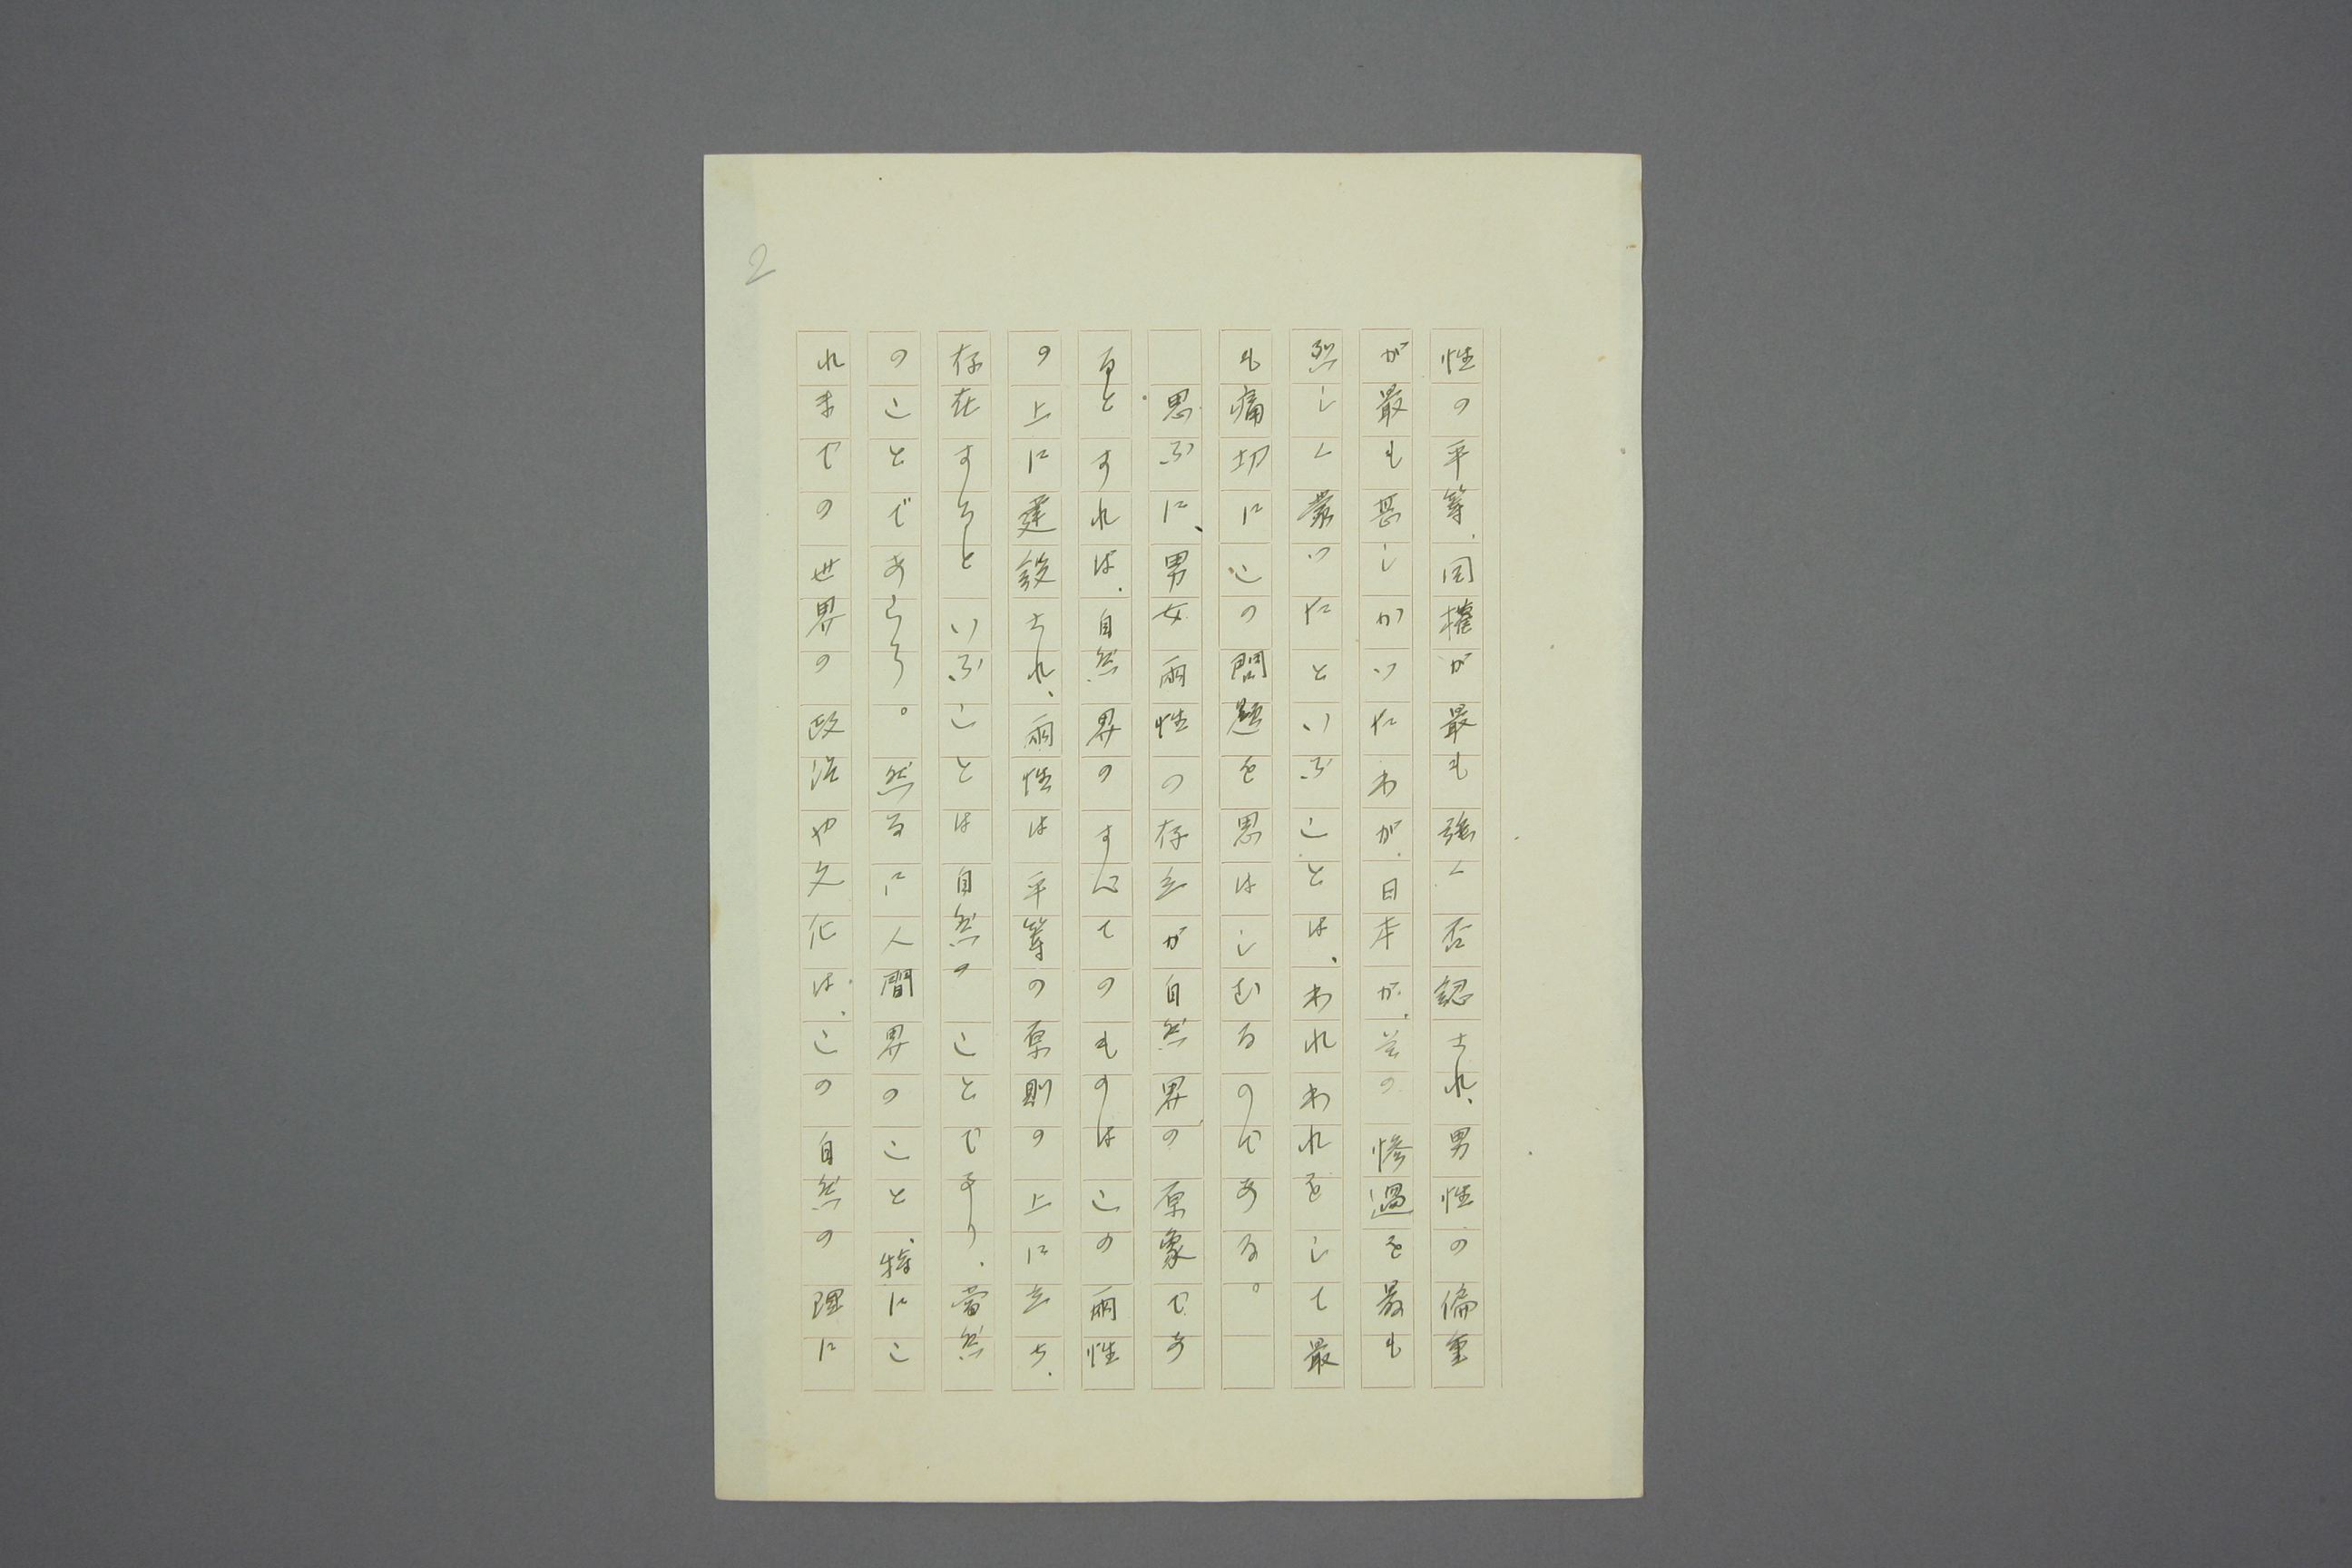 2
性の平等、同権が最も強く否認され、男性の偏重
が最も甚しかつたわが日本が、その惨過を最も
烈しく蒙つたといふことは、われわれをして最
も痛切にこの問題を思はしむるのである。
思ふに、男女両性の存立が自然界の原象であ
るとすれば、自然界のすべてのものはこの両性
の上に建設され、両性は平等の原則の上に立ち、
存在するといふことは自然のことであり、当然
のことであらう。然るに人間界のこと、特にこ
れまでの世界の政治や文化は、この自然の理に